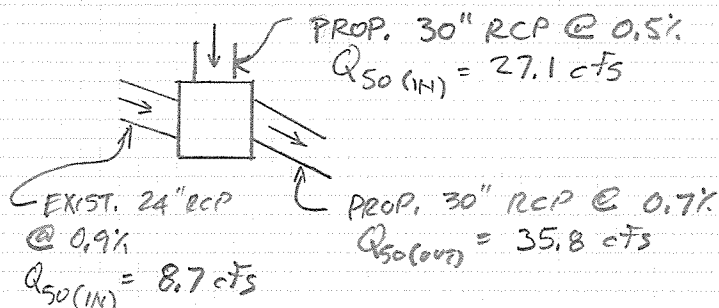 PROP. 30" RCP @ 0.5%
Q50(IN) = 27.1 cfs
EXIST. 24" RCP
@ 0.9%
Q50(IN) = 8.7 cfs
PROP. 30" RCP @ 0.7%
Q50(OUT) = 35.8 cfs